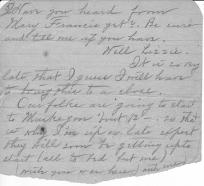 Have you heard from
Mary Francis yet? Be sure
and tell me if you have.
Well Lizzie.
It is so
late, that I guess I will have
to bring this to a close.
Our folks are going to start
to Muskegon so that
is why I'm up so late expect
they will soon be getting up to
start (all to bed but me)
(write soon